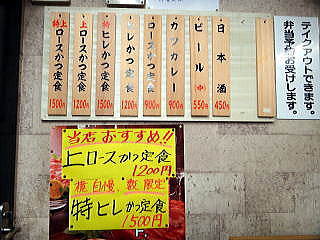 テイクアウトできます。
弁当予約お受けします。
日本酒 450円
ビール(中) 550円
カツカレー 900円
ロースかつ定食 900円
ヒレかつ定食 1200円
特ヒレかつ定食 1500円
上ロースかつ定食 1200円
特上ロースかつ定食 1500円
当店おすすめ!!
上ロースかつ定食
1200円
自慢、数限定
特ヒレかつ定食
1500円